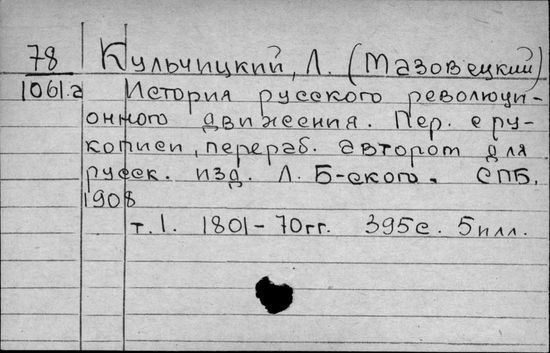 78 Кульчицкий, Л. (Мазовецкий)
1061.а История русского революци-
онного движения. Пер. с ру-
кописи, перераб. автором для
русск. изд. Л. Б-ского. СПБ,
1908
т.1. 1801-70гг. 395с. 5илл.